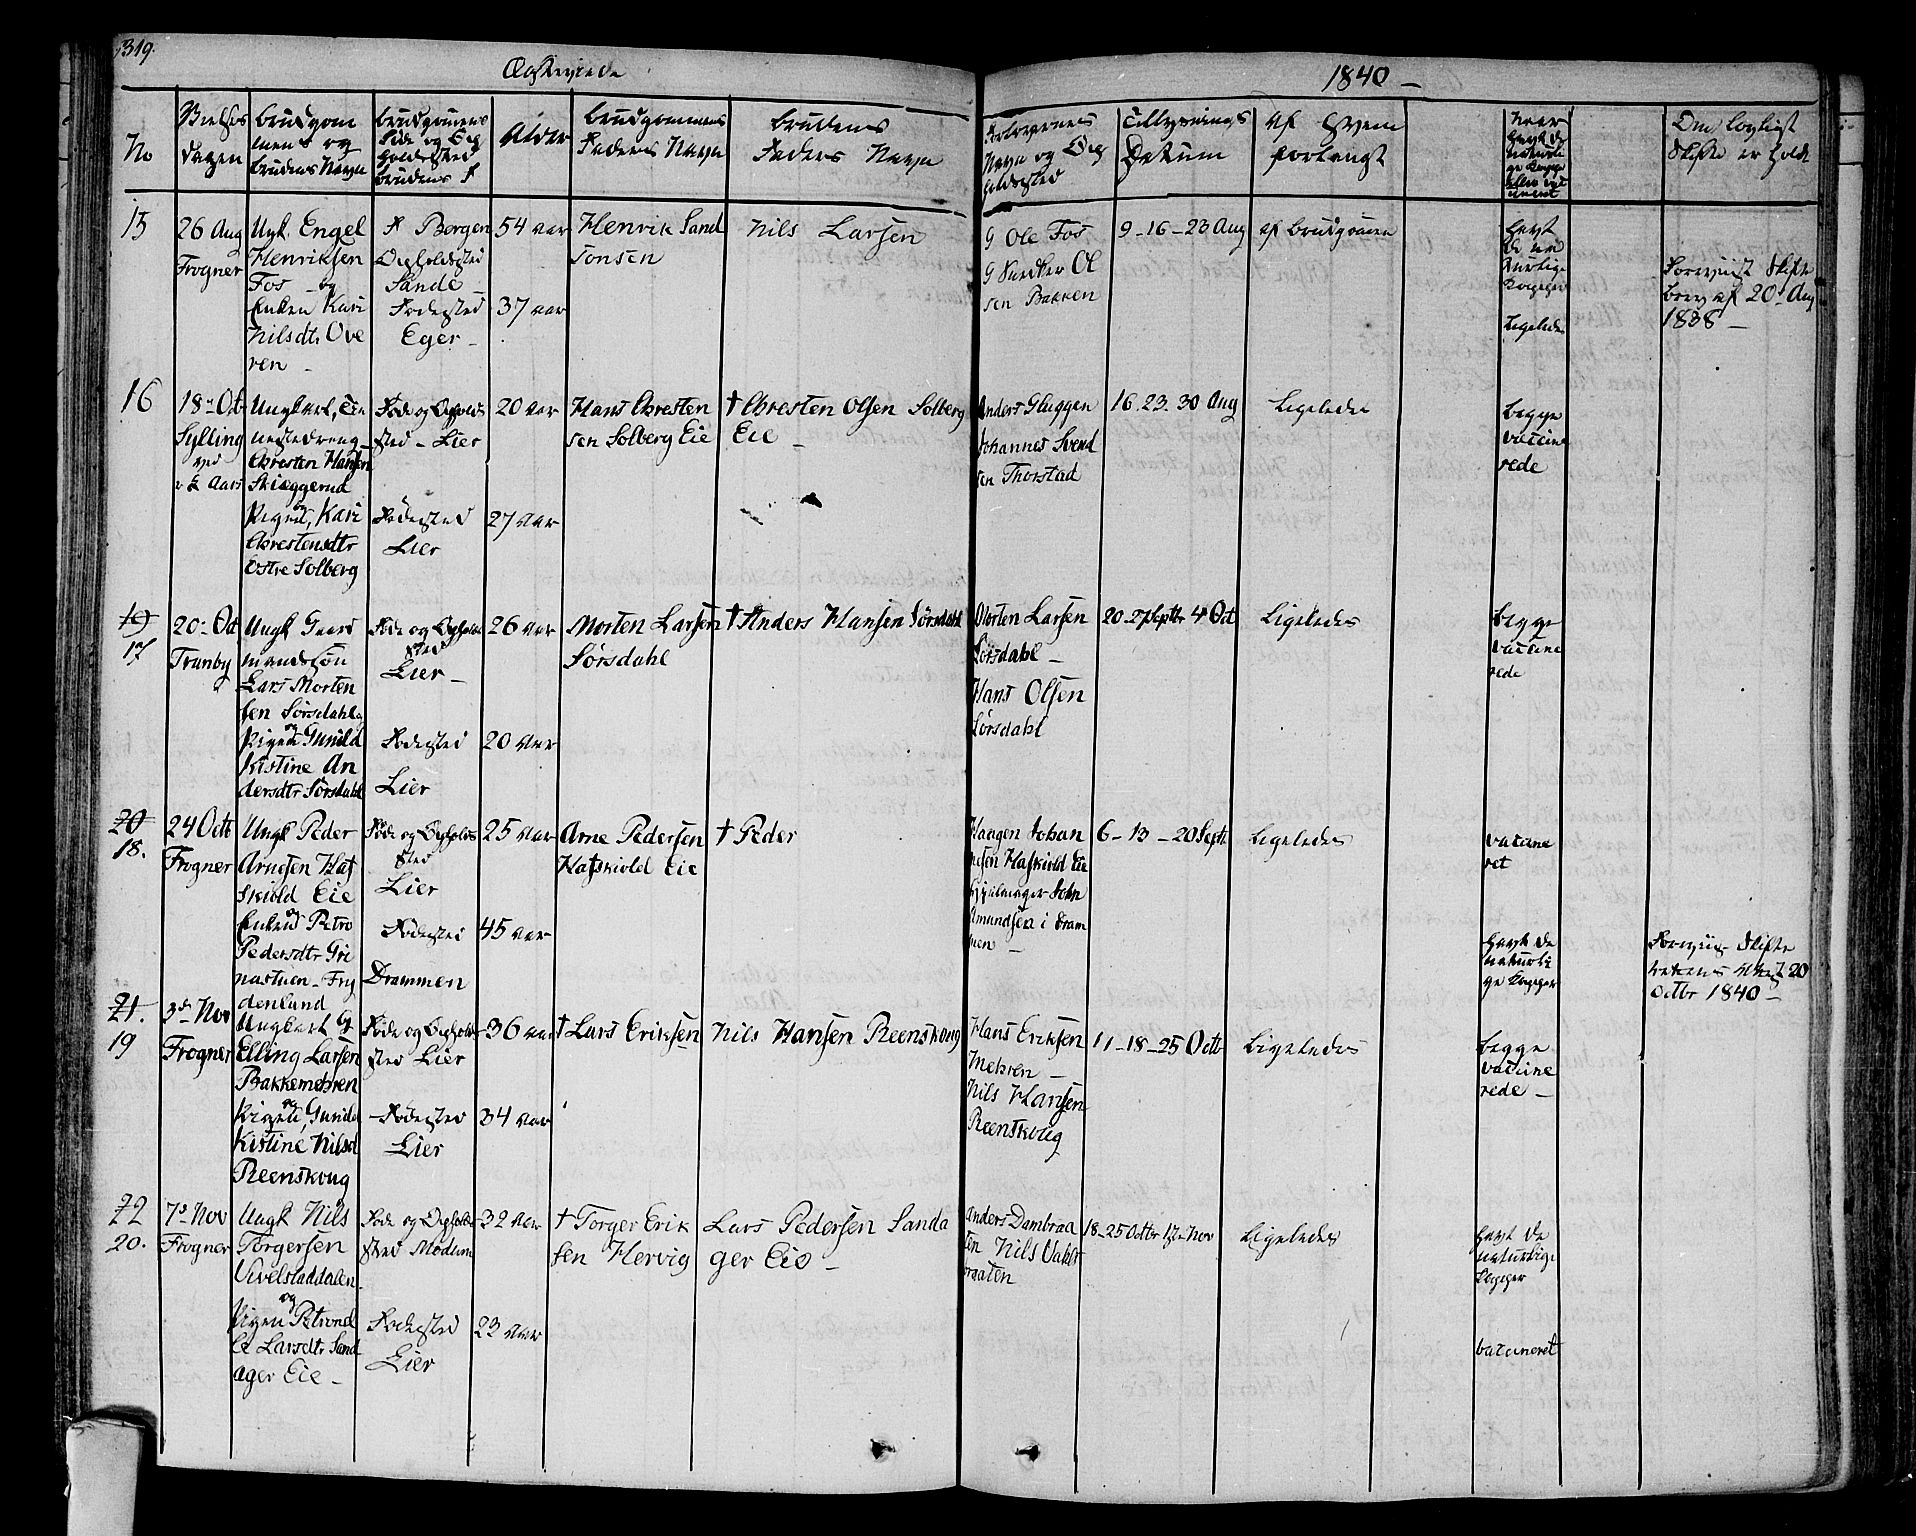 319.
Ægteviede
1840 -
No
Vielses
dagen
Brudgom
mens og
Brudens Navn
Brudgommens
Føde og Op
holdssted
Brudens F
Alder
Brudgommens
Faders Navn
Brudens
Faders Navn
Forlovernes
Navn og Op
holdssted
Tillysnings
Datum
af Hvem
forlangt
Om lovligt
Skifte er holdt
15
26 Aug
Frogner
Ungk. Engel
Henriksen
Fos - og
Enken Kari
Nilsdtr. Ove
ren -
F Bergen
Opholdssted
Sande -
Fødested
Eger -
54 aar
37 aar
Henrik Sand
sonsen
Nils Larsen
G Ole Fos
G Snedker Ol
sen Bakken
9-16-23 Aug
af Brudgommen
havt
de na
turlige
Kopper
Ligeledes
Foreviist Skifte
brev af 20de Aug
1838 -
16
18de Oct
Sylling
ved
Aars
Ungkarl, Tje
nestedreng
Chresten Hansen
Skiæggerud
og
Pigen, Kari
Chrestensdtr
Østre Solberg
Føde og Opholds
sted - Lier
Fødested
Lier
20 aar
27 aar
Hans Chresten
sen Solberg Eie
† Chresten Olsen Solberg
Eie -
Anders Gluggen
Johannes Svend
sen Thorstad
16. 23. 30 Aug
Ligeledes
Begge
vaccine
rede
19
17
20de Oct
Tranby
Ungk Gaard
mandssøn
Lars Morten
sen Sørsdahl
og
Pigen Gunild
Kistine An
dersdtr Sørsdahl
Føde og Opholds
sted
Lier -
Fødested
Lier
26 aar
20 aar
Morten Larsen
Sørsdahl
† Anders Hansen Sørsdahl
Morten Larsen
Sørsdahl -
Hans Olsen
Sørsdahl
20-27 Septbr 4 Oct
Ligeledes
Begge
vaccine
rede
20
18.
24 Octb
Frogner
Ungk Peder
Arnesen Haf
skiold Eie
og
Enken Petro
Pedersdtr Gri
nastuen - Fry
denlund
Føde og Opholds
sted
Lier
Fødested
Drammen
25 aar
45 aar
Arne Pedersen
Hafskiold Eie
† Peder
Haagen Johan
nesen Hafskiold Eie
Hjulmager John
Amundsen i Dram
men -
6-13-20 Septb
Ligeledes
vaccine
ret
havt de
naturli
ge Kopper
20
Octbr 1840 -
21.
19
3de Nov
Frogner
Ungkarl G
Elling Larsen
Bakkemehren
og
Pigen, Gunild
Kistine Nilsd
Reenskoug
Føde og Opholds
sted Lier
Fødested
Lier
36 aar
34 aar
† Lars Eriksen
Nils Hansen Reenskoug
Hans Eriksen
Mehren -
Nils Hansen
Reenskoug
11-18-25 Octb
Ligeledes
Begge
vaccine
rede -
22
20.
7de Nov
Frogner
Ungk Nils
Torgersen
Vivelstaddalen
og
Pigen Petronel
le Larsdtr Sand
ager Eie -
Føde og Opholds
sted Modum
Fødested
Lier
32 aar
23 aar
† Torger Erik
sen Hervig
Lars Pedersen Sanda
ger Eie -
Anders Dambraa
ten Nils
braaten
18-25 Octbr 1ste Nov
Ligeledes
havt de
naturlige
Kopper
vaccineret